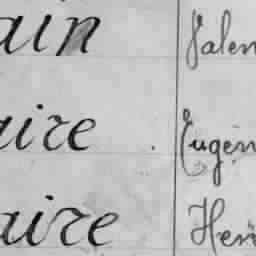 ain Valen
aire Eugén
aire Hen